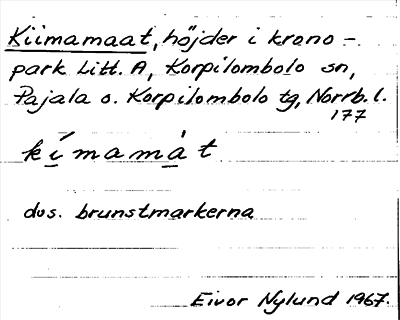 Kiimamaat, höjder i krono-
park Litt. A, Korpilombolo sn,
Pajala o. Korpilombolo tg, Norrb. l.
177
kímamàt
dvs. brunstmarkerna
Eivor Nylund 1967.